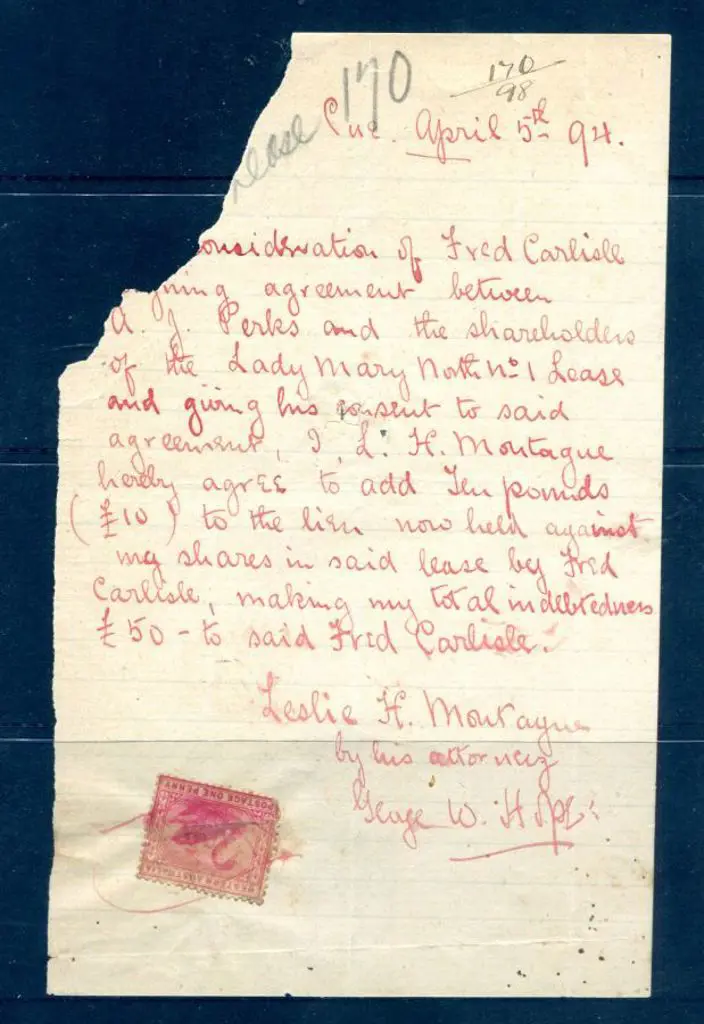 Lease 170
170/98
Cue. April 5th 94.
onsideration of Fred Carlisle
gning agreement between
A. J. Perks and the shareholders
of the Lady Mary North No 1 Lease
and giving his consent to said
agreement, I, L. H. Montague
hereby agree to add Ten pounds
(£10) to the lien now held against
my shares in said lease by Fred
Carlisle, making my total indebtedness
£50 - to said Fred Carlisle.
Leslie H. Montague
by his attorney
George W. Hope
POSTAGE ONE PENNY
WESTERN AUSTRALIA